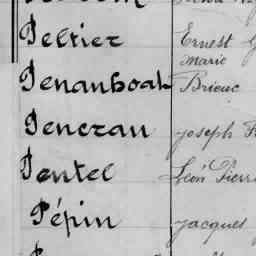 Peltier Ernest G
Marie
Penanhoah Brieuc
Pencran Joseph F
Pentel Léon Pierr
Pépin Jacques